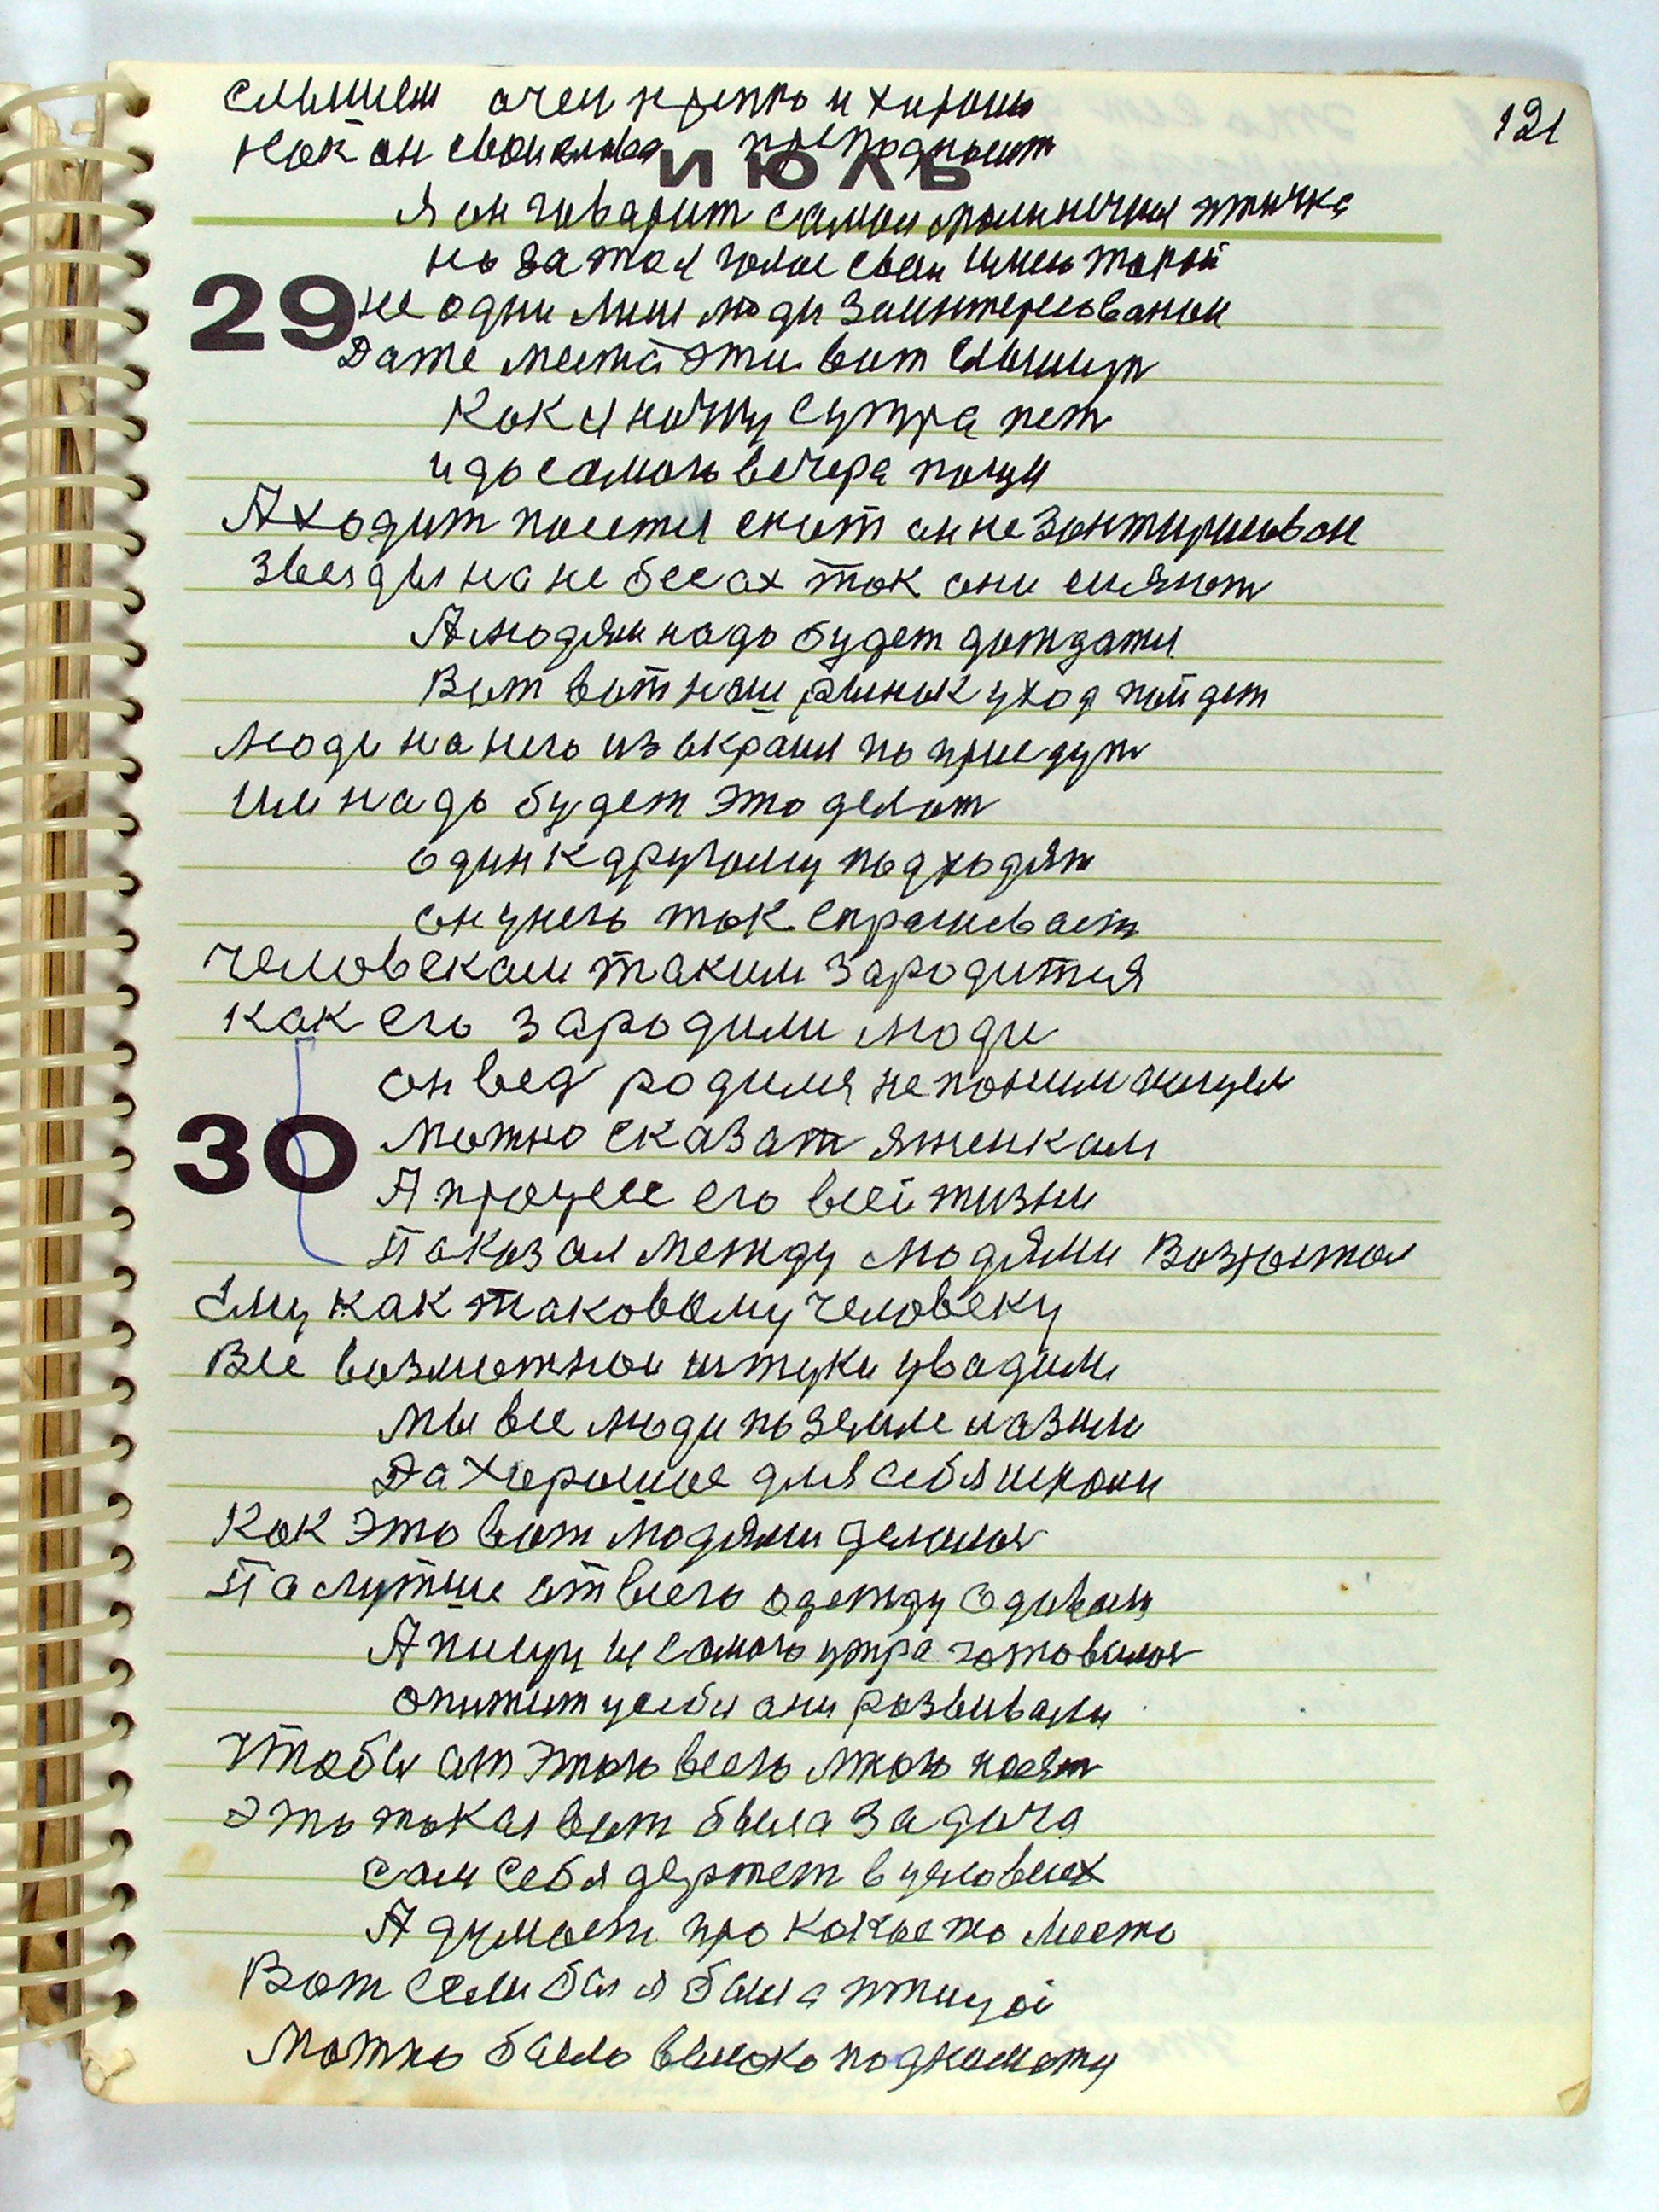 121
слышем очен крепко и хорошо
как он свои слова преподносит
ИЮЛЬ
я он говарит самая малинечкая птичка
но за тоя голос свои имею такой
29
не одни лиш люди заинтересованаи
Даже места эти вот слышут
Как я начну сутра пет
и до самого вечера пощи
А ходит поется скот он не зонтирисован
звезды на небесах так они сияют
А людям надо будет дожзатся
Вот вот наш рынок уход пойдет
люди на него из окраин по приедут
им надо будет это делат
один к другому подходят
он унего так спрашивает
человекам таким зародится
как его зародили люди
он вед родился непоним аищем
30
можно сказат яженкам
А процесе его всей жизни
Паказал между людями Вазростал
ему как таковому человеку
Все возможнои штуки увадим
мы все люди по земле лазим
Да хорошое для себя
Как это вот людями делалоя
Па лутше от всего одежду одивают
А пищу и самого утра готовилоя
опитит усебя они розвивали
чтобы от этого всего много
это такая вот была задача
сам себя держет в условиех
А думает про какое то место
Вот если бы я была птицой
можно было высоко